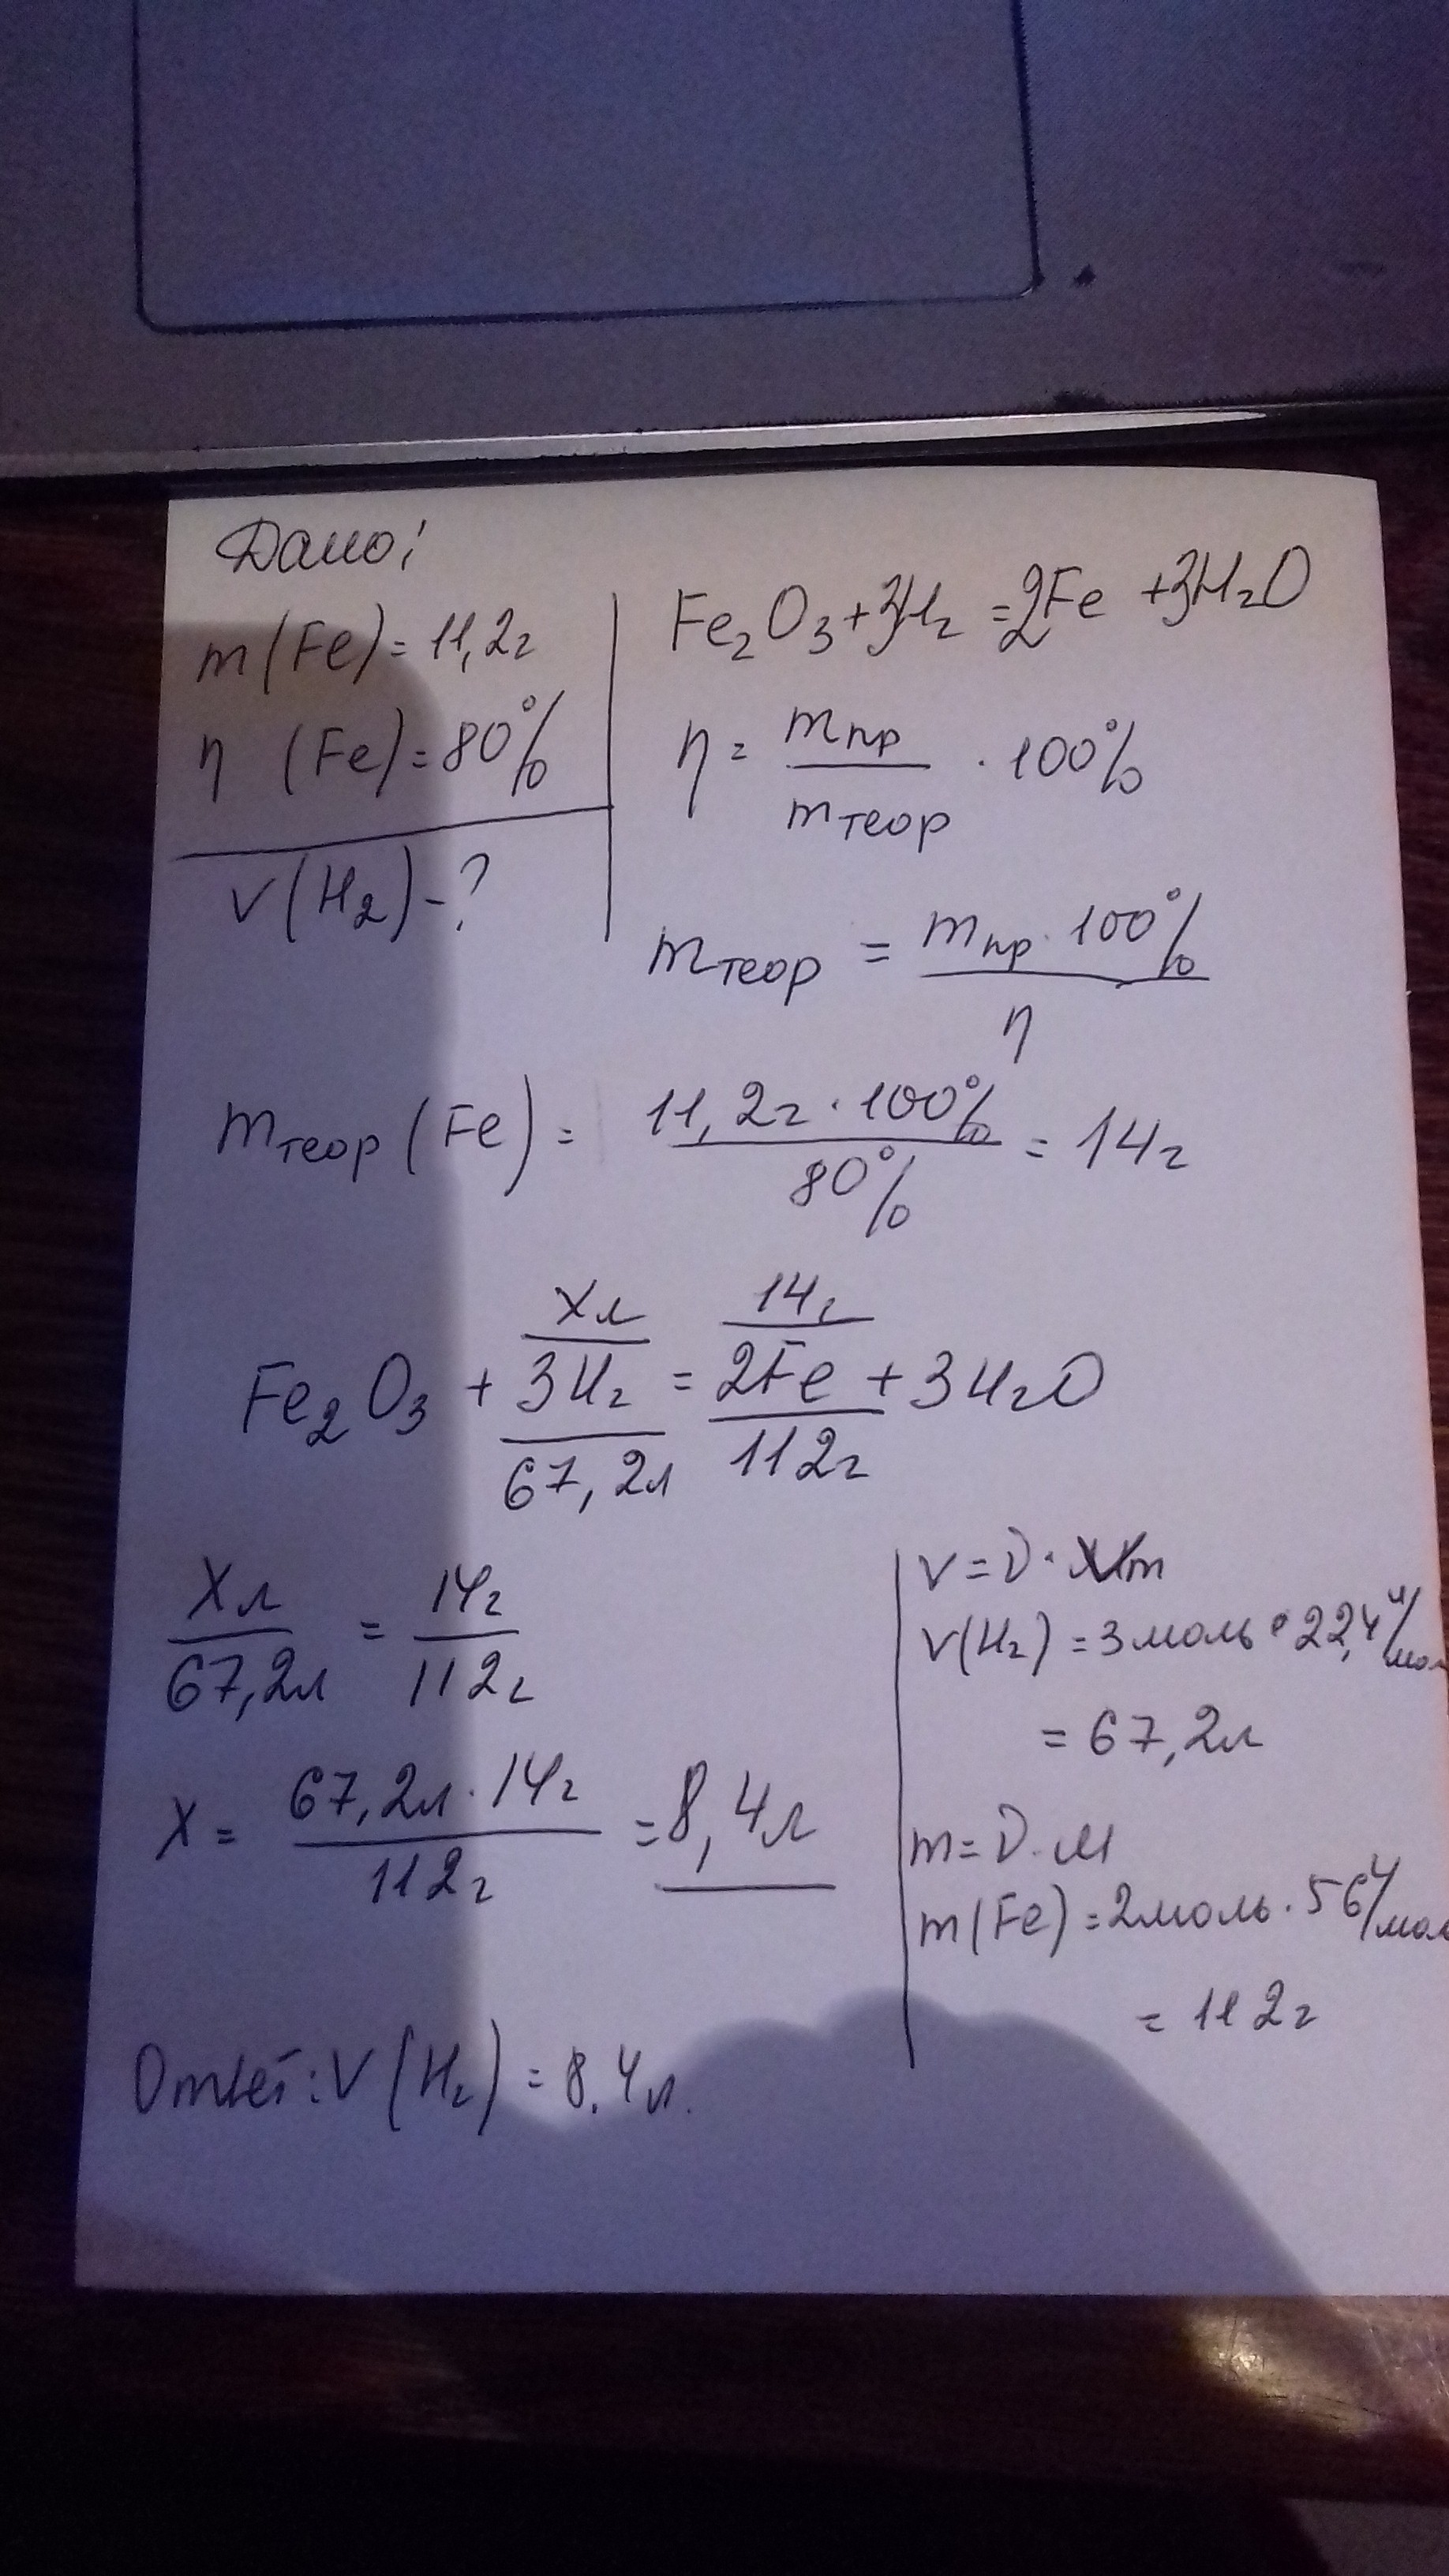 Дано:
m(Fe) = 11,2г
η (Fe) = 80%
V(H₂) - ?
Fe₂O₃ + 3H₂ = 2Fe + 3H₂O
η = mпр / mтеор · 100%
mтеор = mпр · 100% / η
mтеор (Fe) = 11,2г · 100% / 80% = 14г
xл 14г
Fe₂O₃ + 3H₂ = 2Fe + 3H₂O
67,2л 112г
xл / 67,2л = 14г / 112г
x = 67,2л · 14г / 112г = 8,4л
V = ν · Vm
V(H₂) = 3моль · 22,4 л/мол
= 67,2л
m = ν · M
m(Fe) = 2моль · 56 г/мол
= 112г
Ответ: V(H₂) = 8,4л.